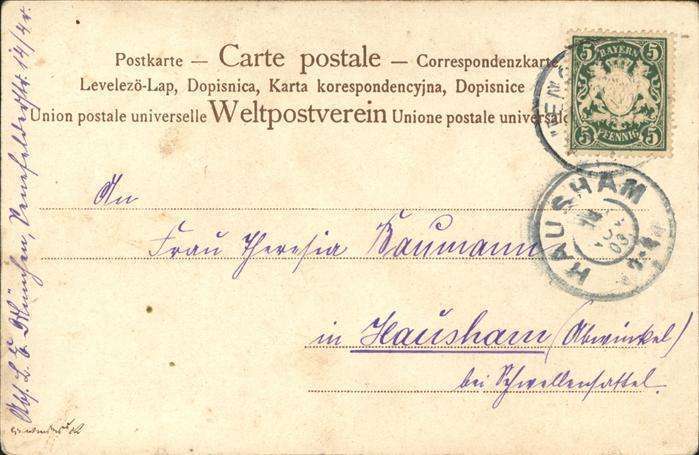 Postkarte — Carte postale — Correspondenzkarte
Levelezö-Lap, Dopisnica, Karta korespondencyjna, Dopisnice
Union postale universelle Weltpostverein Unione postale universale
5 BAYERN 5
5 PFENNIG 5
HAUSHAM
An
Frau Theresia Baumann
in Hausham (Abwinkel)
bei Schwellensattel.
Abs. L. B. München, Senefelderstr. 14/4 r.